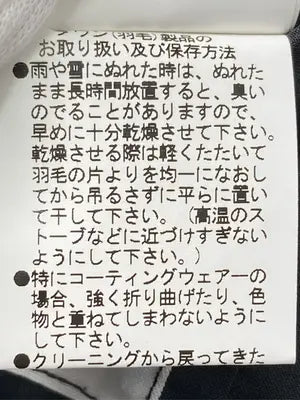 ダウン(羽毛)製品の
お取り扱い及び保存方法
●雨や雪にぬれた時は、ぬれた
まま長時間放置すると、臭い
のでることがありますので、
早めに十分乾燥させて下さい。
乾燥させる際は軽くたたいて
羽毛の片よりを均一になおし
てから吊るさずに平らに置い
て干して下さい。(高温のス
トーブなどに近づけすぎない
ようにして下さい。)
●特にコーティングウェアーの
場合、強く折り曲げたり、色
物と重ねてしまわないように
して下さい。
●クリーニングから戻ってきた